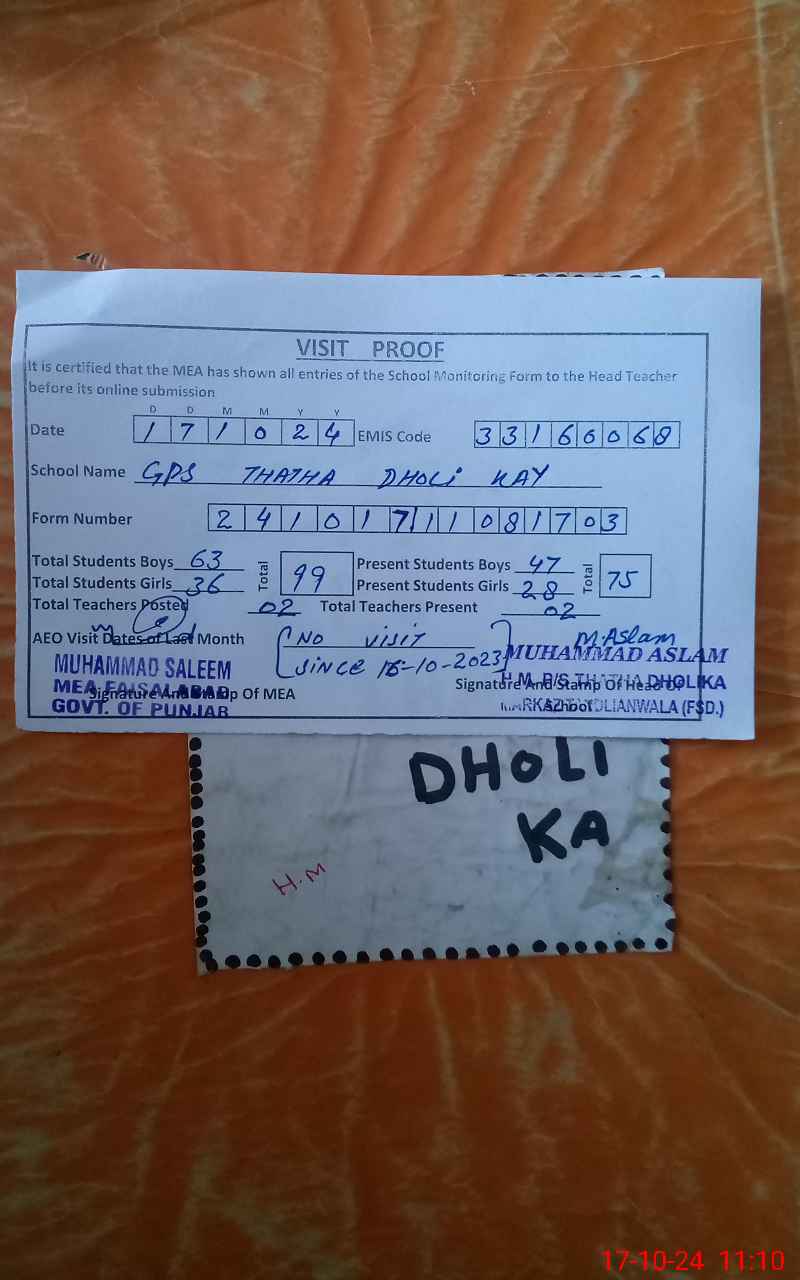 VISIT PROOF
It is certified that the MEA has shown all entries of the School Monitoring Form to the Head Teacher
before its online submission
D D M M Y Y
Date 1 7 1 0 2 4 EMIS Code 3 3 1 6 0 0 6 8
School Name GPS THATHA DHOLI KAY
Form Number 2 4 1 0 1 7 1 1 0 8 1 7 0 3
Total Students Boys 63 Total 99 Present Students Boys 47 Total 75
Total Students Girls 36 Present Students Girls 28
Total Teachers Posted 02 Total Teachers Present 02
AEO Visit Dates of Last Month NO VISIT
SINCE 16-10-2023
M.Aslam
MUHAMMAD SALEEM
MEA FAISALABAD
GOVT. OF PUNJAB
Signature And Stamp Of MEA
MUHAMMAD ASLAM
H.M. P/S THATHA DHOLIKA
Signature And Stamp Of Head Of
School
DHOLI
KA
H.M
17-10-24 11:10